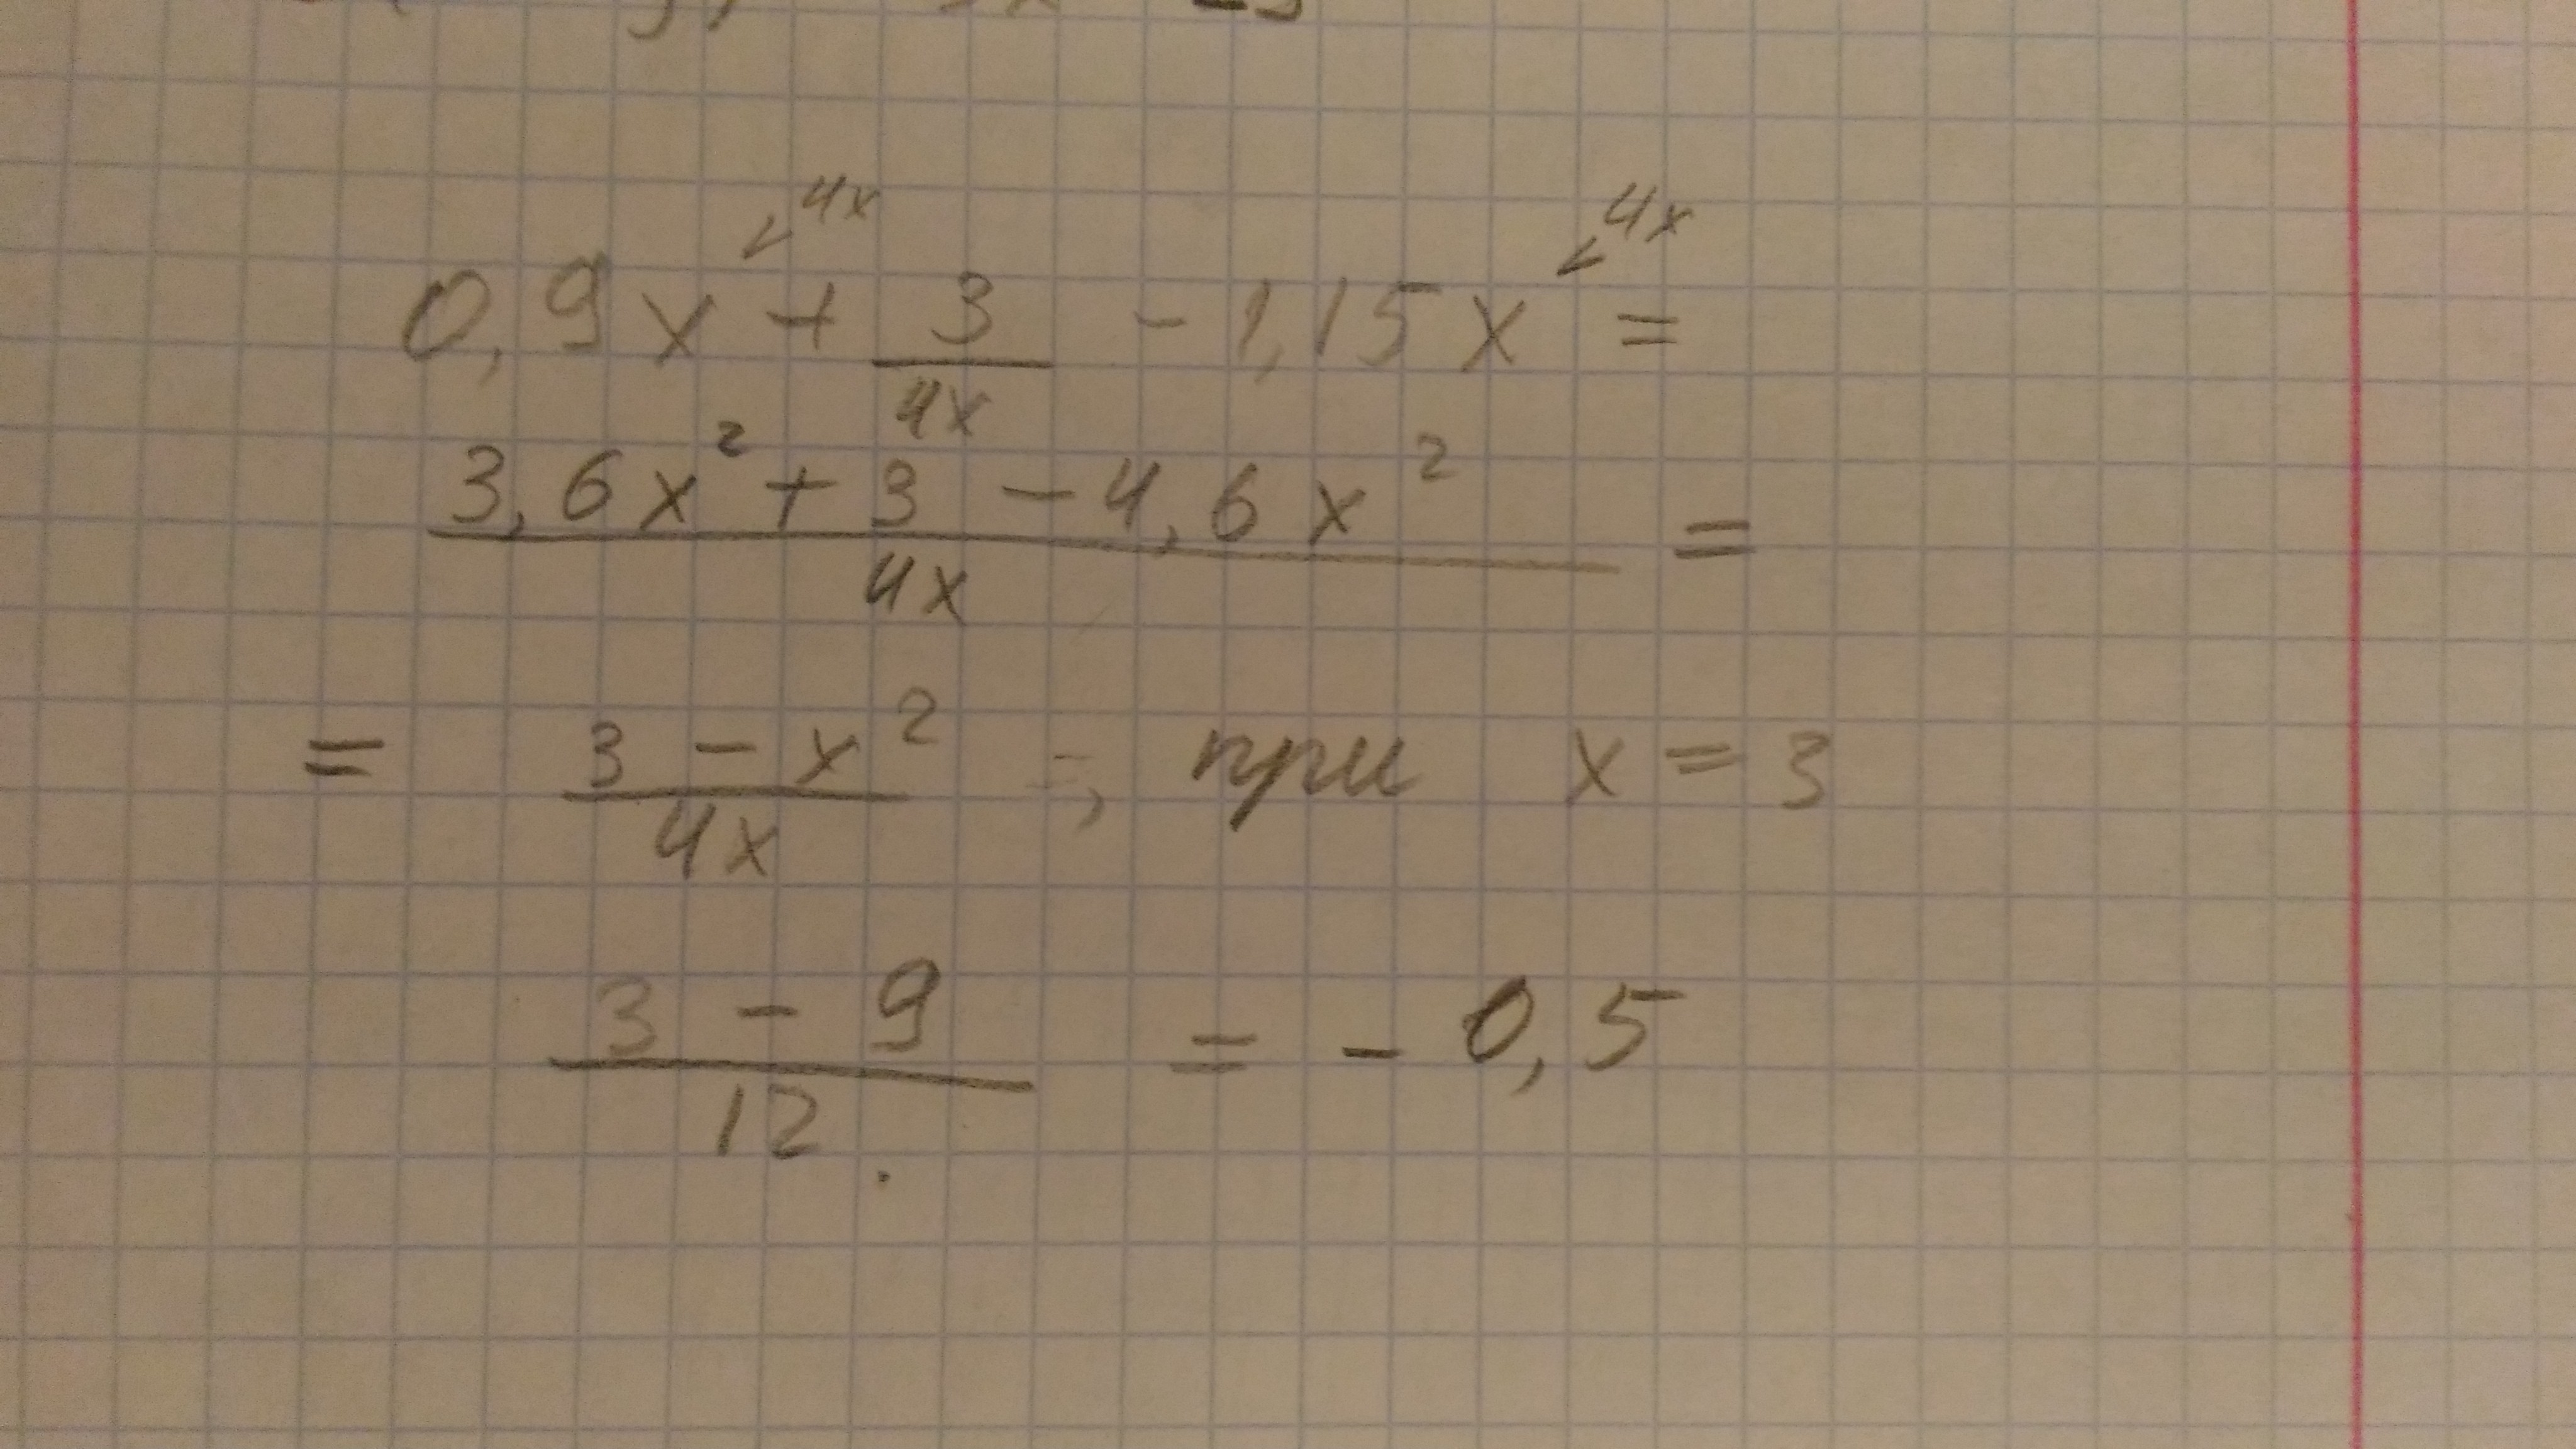 4x 4x
0,9x + 3/4x - 1,15x =
3,6x² + 3 - 4,6x² / 4x =
= 3 - x² / 4x =, при x = 3
3 - 9 / 12 = - 0,5